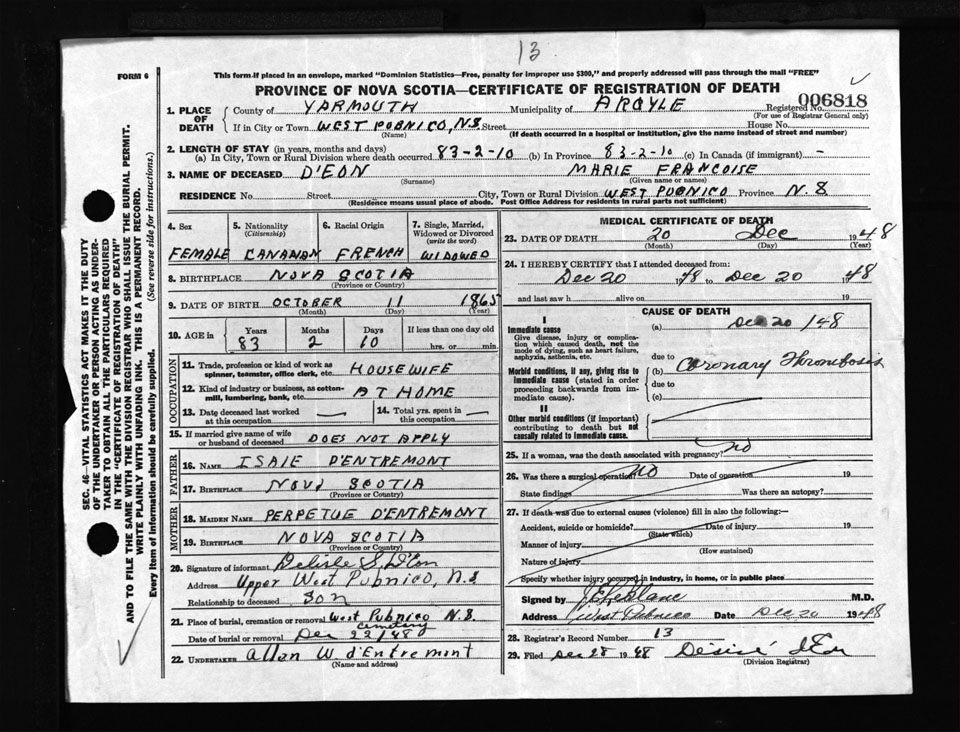 13
FORM 6
This form if placed in an envelope, marked "Dominion Statistics—Free, penalty for improper use $300," and properly addressed will pass through the mail "FREE"
PROVINCE OF NOVA SCOTIA—CERTIFICATE OF REGISTRATION OF DEATH
1. PLACE OF DEATH County of YARMOUTH Municipality of ARGYLE Registered No. 006818
(For use of Registrar General only)
If in City or Town WEST PUBNICO, N.S. Street House No.
(Name) (If death occurred in a hospital or institution, give the name instead of street and number)
2. LENGTH OF STAY (in years, months and days)
(a) In City, Town or Rural Division where death occurred 83-2-10 (b) In Province 83-2-10 (c) In Canada (if immigrant) —
3. NAME OF DECEASED D'EON MARIE FRANCOISE
(Surname) (Given name or names)
RESIDENCE No. Street City, Town or Rural Division WEST PUBNICO Province N.S
(Residence means usual place of abode. Post Office Address for residents in rural parts not sufficient)
4. Sex FEMALE
5. Nationality (Citizenship) CANADIAN
6. Racial Origin FRENCH
7. Single, Married, Widowed or Divorced (write the word) WIDOWED
8. BIRTHPLACE NOVA SCOTIA
(Province or Country)
9. DATE OF BIRTH OCTOBER 11 1865
(Month) (Day) (Year)
10. AGE in Years Months Days If less than one day old
83 2 10 hrs. or min.
OCCUPATION
11. Trade, profession or kind of work as spinner, teamster, office clerk, etc. HOUSEWIFE
12. Kind of industry or business, as cotton-mill, lumbering, bank, etc. AT HOME
13. Date deceased last worked at this occupation —
14. Total yrs. spent in this occupation —
15. If married give name of wife or husband of deceased DOES NOT APPLY
FATHER
16. NAME ISAIE D'ENTREMONT
17. BIRTHPLACE NOVA SCOTIA
(Province or Country)
MOTHER
18. MAIDEN NAME PERPETUE D'ENTREMONT
19. BIRTHPLACE NOVA SCOTIA
(Province or Country)
20. Signature of informant Delisle S. D'Eon
Address Upper West Pubnico, N.S
Relationship to deceased Son
21. Place of burial, cremation or removal West Pubnico N.S.
cemetery
Date of burial or removal Dec 22/48
22. UNDERTAKER Allan W. d'Entremont
(Name and address)
MEDICAL CERTIFICATE OF DEATH
23. DATE OF DEATH 20 Dec 1948
(Month) (Day) (Year)
24. I HEREBY CERTIFY that I attended deceased from:
Dec 20 48 to Dec 20 1948
and last saw h alive on 19
CAUSE OF DEATH
I
Immediate cause
Give disease, injury or complication which caused death, not the mode of dying, such as heart failure, asphyxia, asthenia, etc.
(a) Dec 20/48
due to
Morbid conditions, if any, giving rise to immediate cause (stated in order proceeding backwards from immediate cause).
(b) Coronary Thrombosis
due to
(c)
II
Other morbid conditions (if important) contributing to death but not causally related to immediate cause.
25. If a woman, was the death associated with pregnancy? NO
26. Was there a surgical operation? NO Date of operation 19
State findings Was there an autopsy?
27. If death was due to external causes (violence) fill in also the following:—
Accident, suicide or homicide? Date of injury 19
(State which)
Manner of injury
(How sustained)
Nature of injury
Specify whether injury occurred in industry, in home, or in public place
Signed by LeBlanc M.D.
Address West Pubnico Date Dec 20 1948
28. Registrar's Record Number 13
29. Filed Dec 28 1948 Désiré d'Eon
(Division Registrar)
SEC. 46—VITAL STATISTICS ACT MAKES IT THE DUTY
OF THE UNDERTAKER OR PERSON ACTING AS UNDER-
TAKER TO OBTAIN ALL THE PARTICULARS REQUIRED
IN THE "CERTIFICATE OF REGISTRATION OF DEATH"
AND TO FILE THE SAME WITH THE DIVISION REGISTRAR WHO SHALL ISSUE THE BURIAL PERMIT.
WRITE PLAINLY WITH UNFADING INK. THIS IS A PERMANENT RECORD.
Every item of information should be carefully supplied. (See reverse side for instructions.)